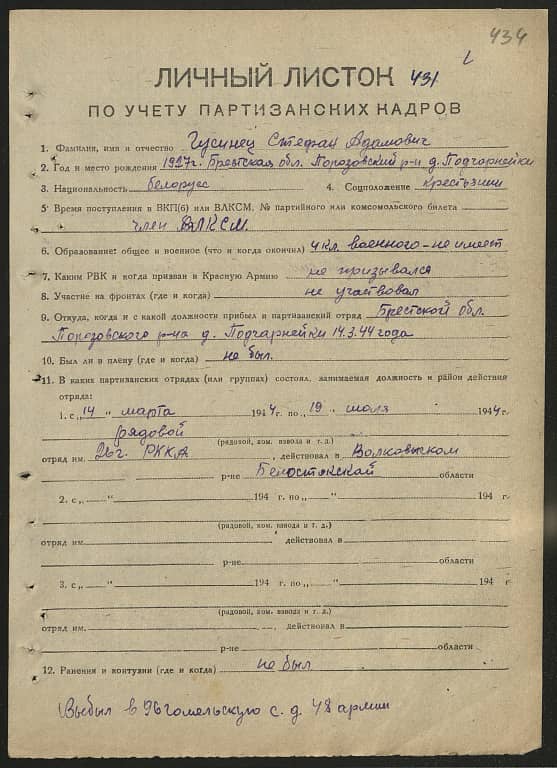 434
ЛИЧНЫЙ ЛИСТОК 431
ПО УЧЕТУ ПАРТИЗАНСКИХ КАДРОВ
1. Фамилия, имя и отчество Гусинец Стефан Адамович
2. Год и место рождения 1927г. Брестская обл. Порозовский р-н д. Подчарнейки
3. Национальность белорус 4. Соцположение крестьянин
5. Время поступления в ВКП(б) или ВЛКСМ. № партийного или комсомольского билета
член ВЛКСМ
6. Образование: общее и военное (что и когда окончил) 4 кл. военного - не имеет
7. Каким РВК и когда призван в Красную Армию не призывался
8. Участие на фронтах (где и когда) не участвовал
9. Откуда, когда и с какой должности прибыл в партизанский отряд Брестской обл.
Порозовского р-на д. Подчарнейки 14.3.44 года
10. Был ли в плену (где и когда) не был.
11. В каких партизанских отрядах (или группах) состоял, занимаемая должность и район действия
отряда:
1. с „14 „ марта 1944г. по „19 „ июля 1944г.
рядовой
(рядовой, ком. взвода и т. д.)
отряд им. 26 г. РККА, действовал в Волковыском
р-не Белостокской области
2. с „ — “ 194 г. по „ — “ 194 г.
(рядовой, ком. взвода и т. д.)
отряд им. действовал в
р-не области
3. с „ — “ 194 г. по „ — “ 194 г
(рядовой, ком. взвода и т. д.)
отряд им. действовал в
р-не области
12. Ранения и контузии (где и когда) не был
Выбыл в 96 гомельскую с. д 48 армии